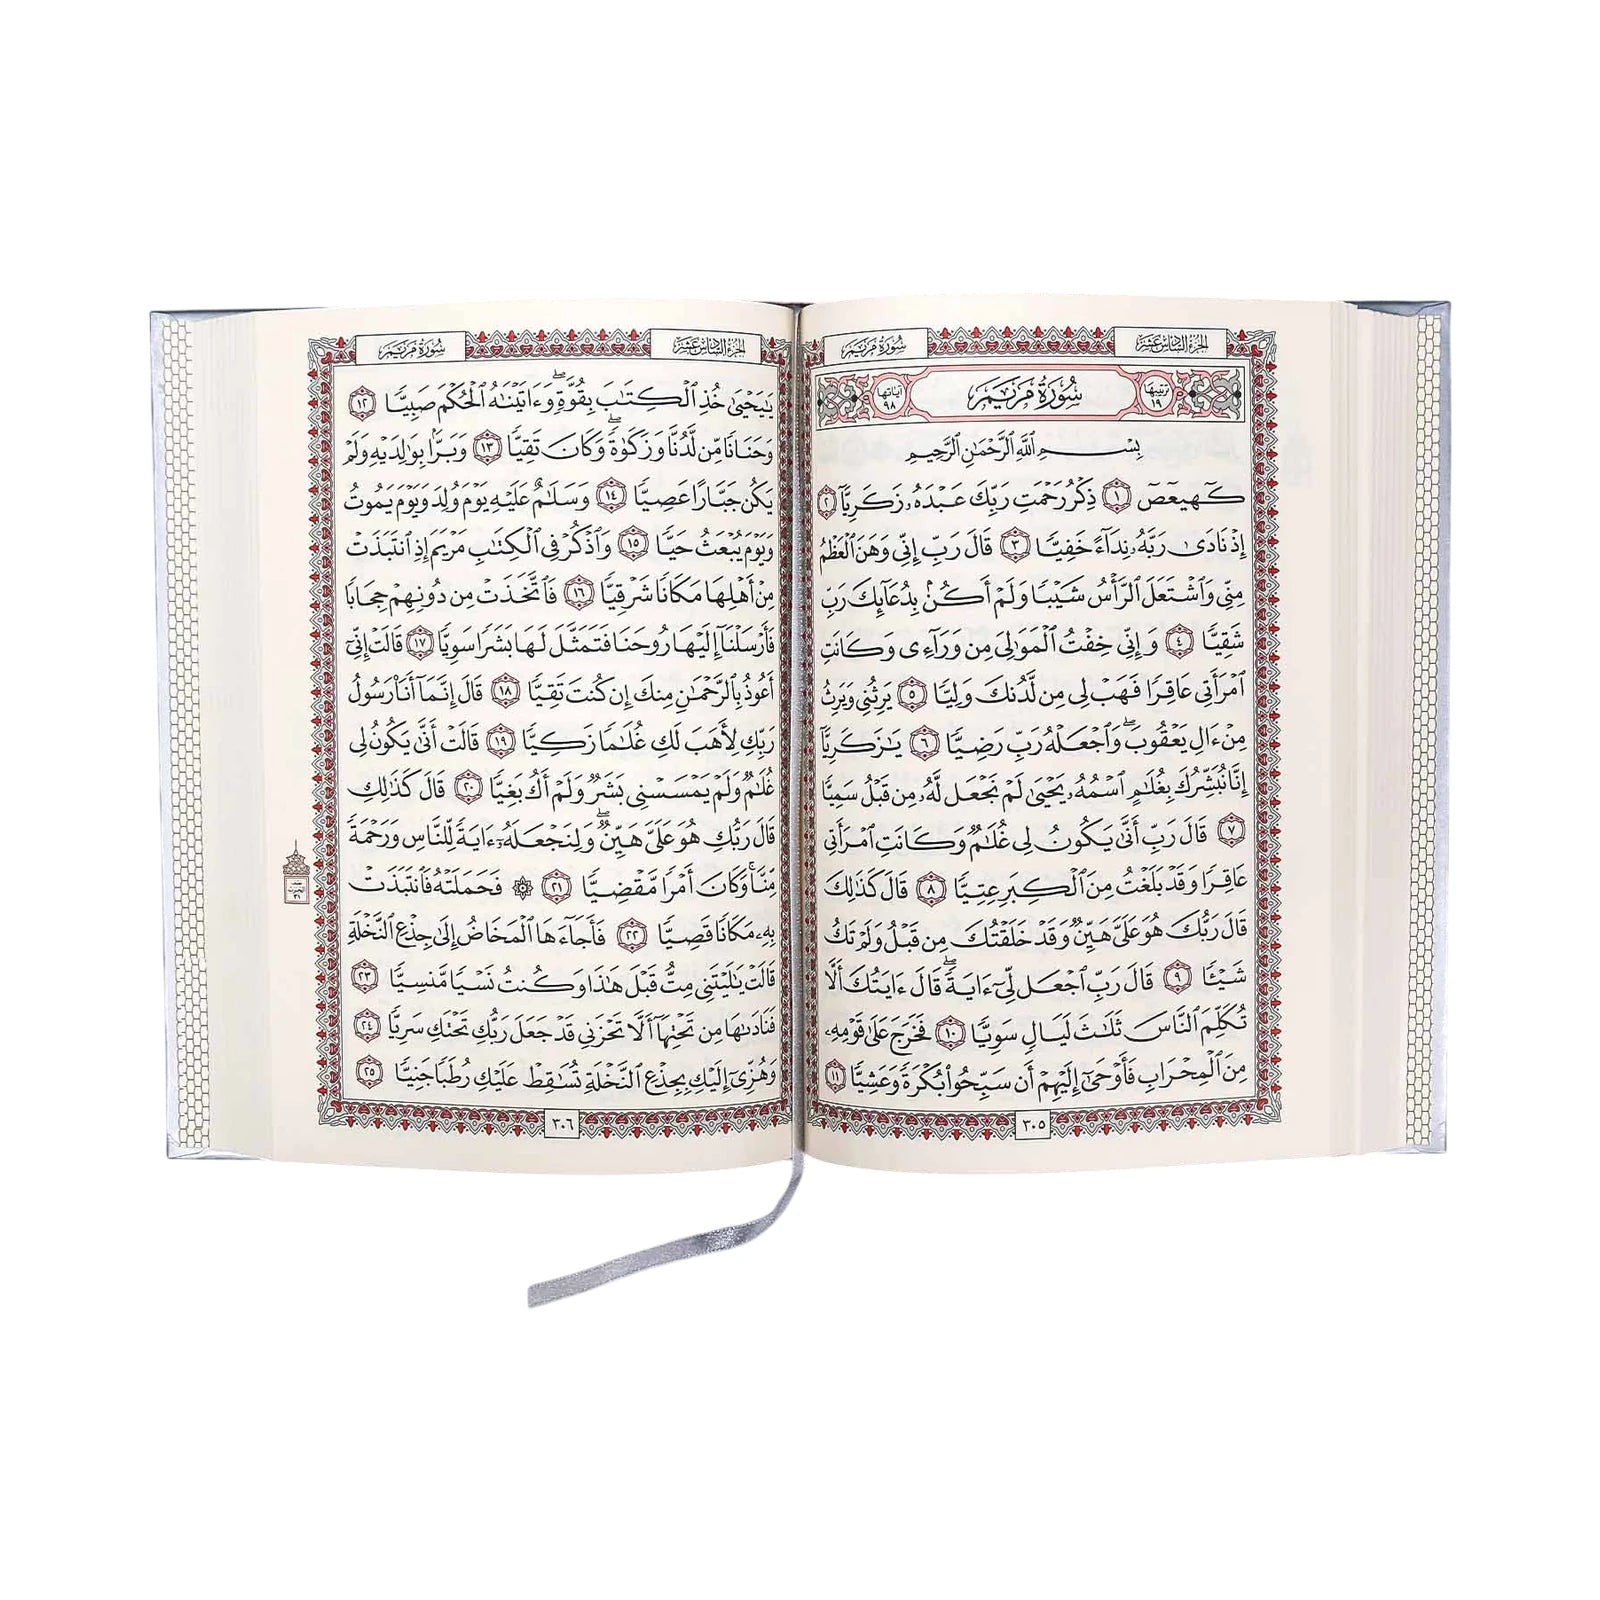 سُورَةُ مَرْيَمَ
الجُزْءُ السَّادِسَ عَشَرَ
تَرْتِيبُهَا ١٩
سُورَةُ مَرْيَمَ
آيَاتُهَا ٩٨
بِسْمِ ٱللَّهِ ٱلرَّحْمَٰنِ ٱلرَّحِيمِ
كٓهيعٓصٓ ١ ذِكْرُ رَحْمَتِ رَبِّكَ عَبْدَهُۥ زَكَرِيَّآ ٢
إِذْ نَادَىٰ رَبَّهُۥ نِدَآءً خَفِيًّا ٣ قَالَ رَبِّ إِنِّي وَهَنَ ٱلْعَظْمُ
مِنِّي وَٱشْتَعَلَ ٱلرَّأْسُ شَيْبًا وَلَمْ أَكُنۢ بِدُعَآئِكَ رَبِّ
شَقِيًّا ٤ وَإِنِّي خِفْتُ ٱلْمَوَٰلِيَ مِن وَرَآءِي وَكَانَتِ
ٱمْرَأَتِي عَاقِرًا فَهَبْ لِي مِن لَّدُنكَ وَلِيًّا ٥ يَرِثُنِي وَيَرِثُ
مِنْ ءَالِ يَعْقُوبَۖ وَٱجْعَلْهُ رَبِّ رَضِيًّا ٦ يَٰزَكَرِيَّآ
إِنَّا نُبَشِّرُكَ بِغُلَٰمٍ ٱسْمُهُۥ يَحْيَىٰ لَمْ نَجْعَل لَّهُۥ مِن قَبْلُ سَمِيًّا
٧ قَالَ رَبِّ أَنَّىٰ يَكُونُ لِي غُلَٰمٌ وَكَانَتِ ٱمْرَأَتِي
عَاقِرًا وَقَدْ بَلَغْتُ مِنَ ٱلْكِبَرِ عِتِيًّا ٨ قَالَ كَذَٰلِكَ
قَالَ رَبُّكَ هُوَ عَلَيَّ هَيِّنٌ وَقَدْ خَلَقْتُكَ مِن قَبْلُ وَلَمْ تَكُ
شَيْـًٔا ٩ قَالَ رَبِّ ٱجْعَل لِّيٓ ءَايَةًۖ قَالَ ءَايَتُكَ أَلَّا
تُكَلِّمَ ٱلنَّاسَ ثَلَٰثَ لَيَالٍ سَوِيًّا ١٠ فَخَرَجَ عَلَىٰ قَوْمِهِۦ
مِنَ ٱلْمِحْرَابِ فَأَوْحَىٰٓ إِلَيْهِمْ أَن سَبِّحُوا۟ بُكْرَةً وَعَشِيًّا ١١
٣٠٥
سُورَةُ مَرْيَمَ
الجُزْءُ السَّادِسَ عَشَرَ
يَٰيَحْيَىٰ خُذِ ٱلْكِتَٰبَ بِقُوَّةٍۖ وَءَاتَيْنَٰهُ ٱلْحُكْمَ صَبِيًّا ١٢
وَحَنَانًا مِّن لَّدُنَّا وَزَكَوٰةًۖ وَكَانَ تَقِيًّا ١٣ وَبَرًّۢا بِوَٰلِدَيْهِ وَلَمْ
يَكُن جَبَّارًا عَصِيًّا ١٤ وَسَلَٰمٌ عَلَيْهِ يَوْمَ وُلِدَ وَيَوْمَ يَمُوتُ
وَيَوْمَ يُبْعَثُ حَيًّا ١٥ وَٱذْكُرْ فِي ٱلْكِتَٰبِ مَرْيَمَ إِذِ ٱنتَبَذَتْ
مِنْ أَهْلِهَا مَكَانًا شَرْقِيًّا ١٦ فَٱتَّخَذَتْ مِن دُونِهِمْ حِجَابًا
فَأَرْسَلْنَآ إِلَيْهَا رُوحَنَا فَتَمَثَّلَ لَهَا بَشَرًا سَوِيًّا ١٧ قَالَتْ إِنِّيٓ
أَعُوذُ بِٱلرَّحْمَٰنِ مِنكَ إِن كُنتَ تَقِيًّا ١٨ قَالَ إِنَّمَآ أَنَا۠ رَسُولُ
رَبِّكِ لِأَهَبَ لَكِ غُلَٰمًا زَكِيًّا ١٩ قَالَتْ أَنَّىٰ يَكُونُ لِي
غُلَٰمٌ وَلَمْ يَمْسَسْنِي بَشَرٌ وَلَمْ أَكُ بَغِيًّا ٢٠ قَالَ كَذَٰلِكِ
قَالَ رَبُّكِ هُوَ عَلَيَّ هَيِّنٌۖ وَلِنَجْعَلَهُۥٓ ءَايَةً لِّلنَّاسِ وَرَحْمَةً
مِّنَّاۚ وَكَانَ أَمْرًا مَّقْضِيًّا ٢١ ۞ فَحَمَلَتْهُ فَٱنتَبَذَتْ
بِهِۦ مَكَانًا قَصِيًّا ٢٢ فَأَجَآءَهَا ٱلْمَخَاضُ إِلَىٰ جِذْعِ ٱلنَّخْلَةِ
قَالَتْ يَٰلَيْتَنِي مِتُّ قَبْلَ هَٰذَا وَكُنتُ نَسْيًا مَّنسِيًّا ٢٣
فَنَادَىٰهَا مِن تَحْتِهَآ أَلَّا تَحْزَنِي قَدْ جَعَلَ رَبُّكِ تَحْتَكِ سَرِيًّا ٢٤
وَهُزِّيٓ إِلَيْكِ بِجِذْعِ ٱلنَّخْلَةِ تُسَٰقِطْ عَلَيْكِ رُطَبًا جَنِيًّا ٢٥
٣٠٦